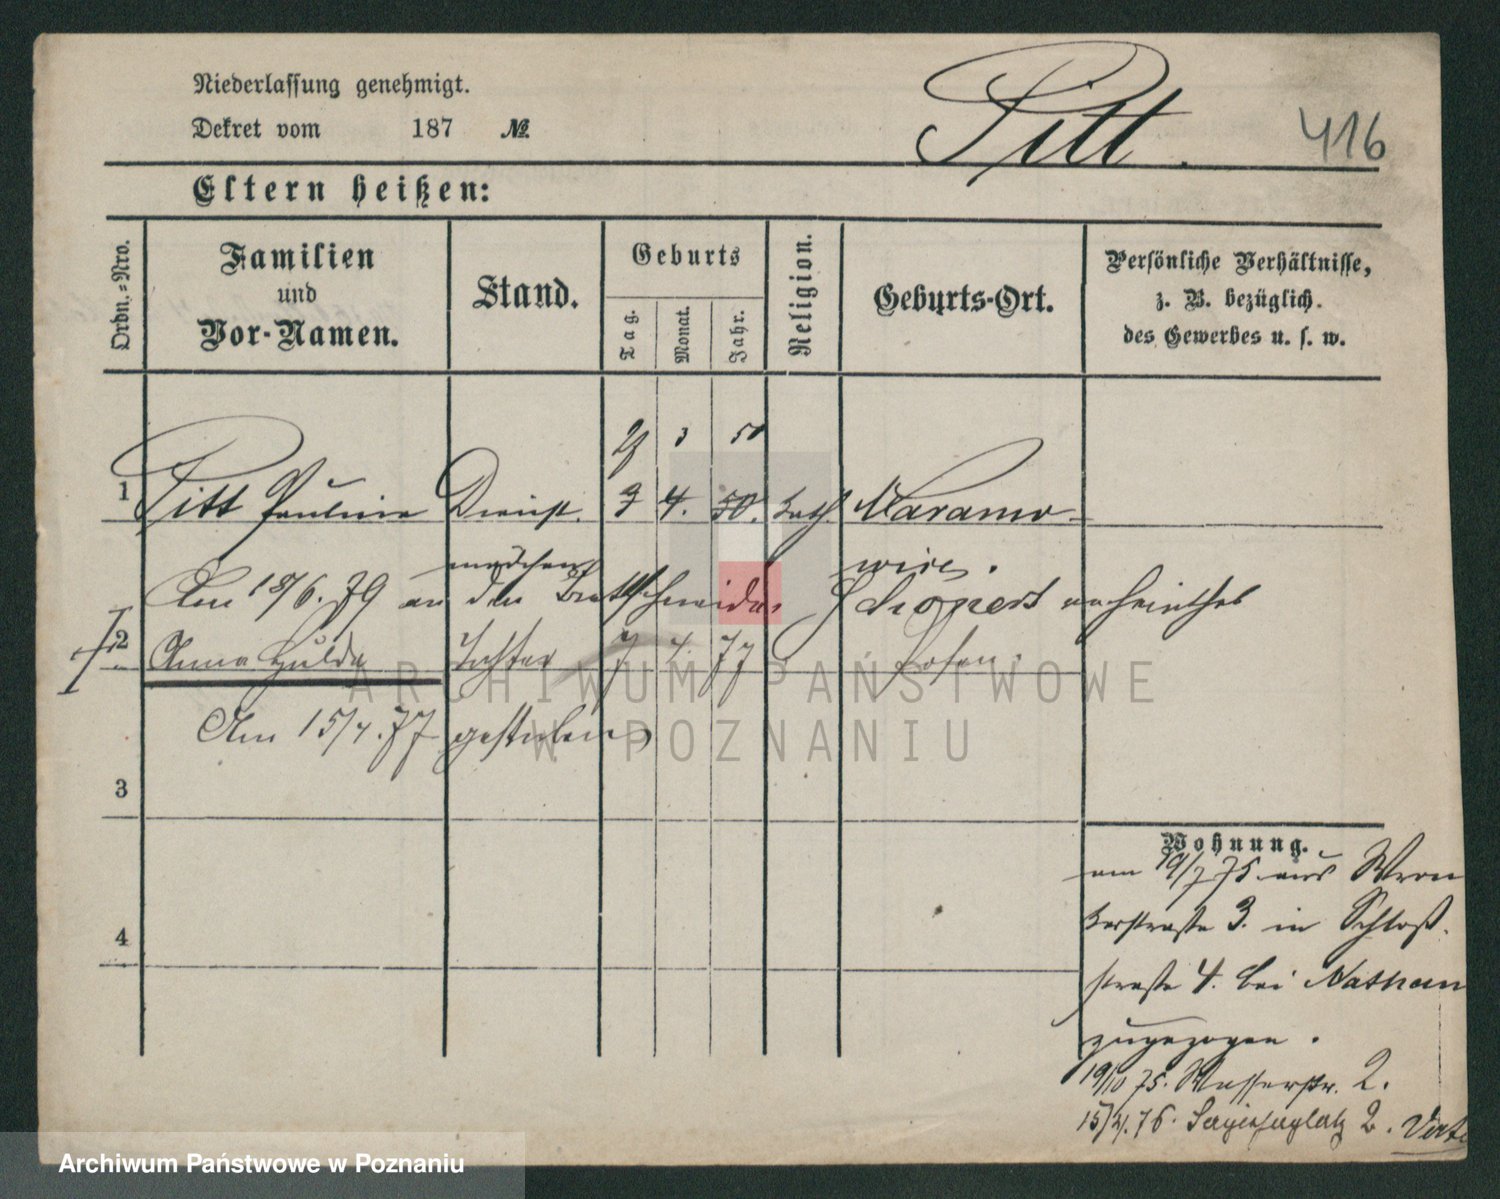 Niederlassung genehmigt.
Dekret vom 187 №
Pitt.
416
Eltern heißen:
Ordn.=Nro.
Familien
und
Vor-Namen.
Stand.
Geburts
Tag.
Monat.
Jahr.
Religion.
Geburts-Ort.
Persönliche Verhältnisse,
z. B. bezüglich.
des Gewerbes u. s. w.
3 50
1 Pitt Pauline Dienst 4. 50. kath. Maramo
mädchen wice.
Am 18/6. 79 an den Brettschneider verheirathet
2 Anna Hulda Tochter 7 4. 77 Posen.
Am 15/4. 77 gestorben
3
4
Wohnung.
am 19/7 75 aus Wron
kerstraße 3. in Schloß.
straße 4. bei Nathan
zugezogen.
19/10 75. Wasserstr. 2.
15/4. 76. 2.
ARCHIWUM PAŃSTWOWE
W POZNANIU
Archiwum Państwowe w Poznaniu